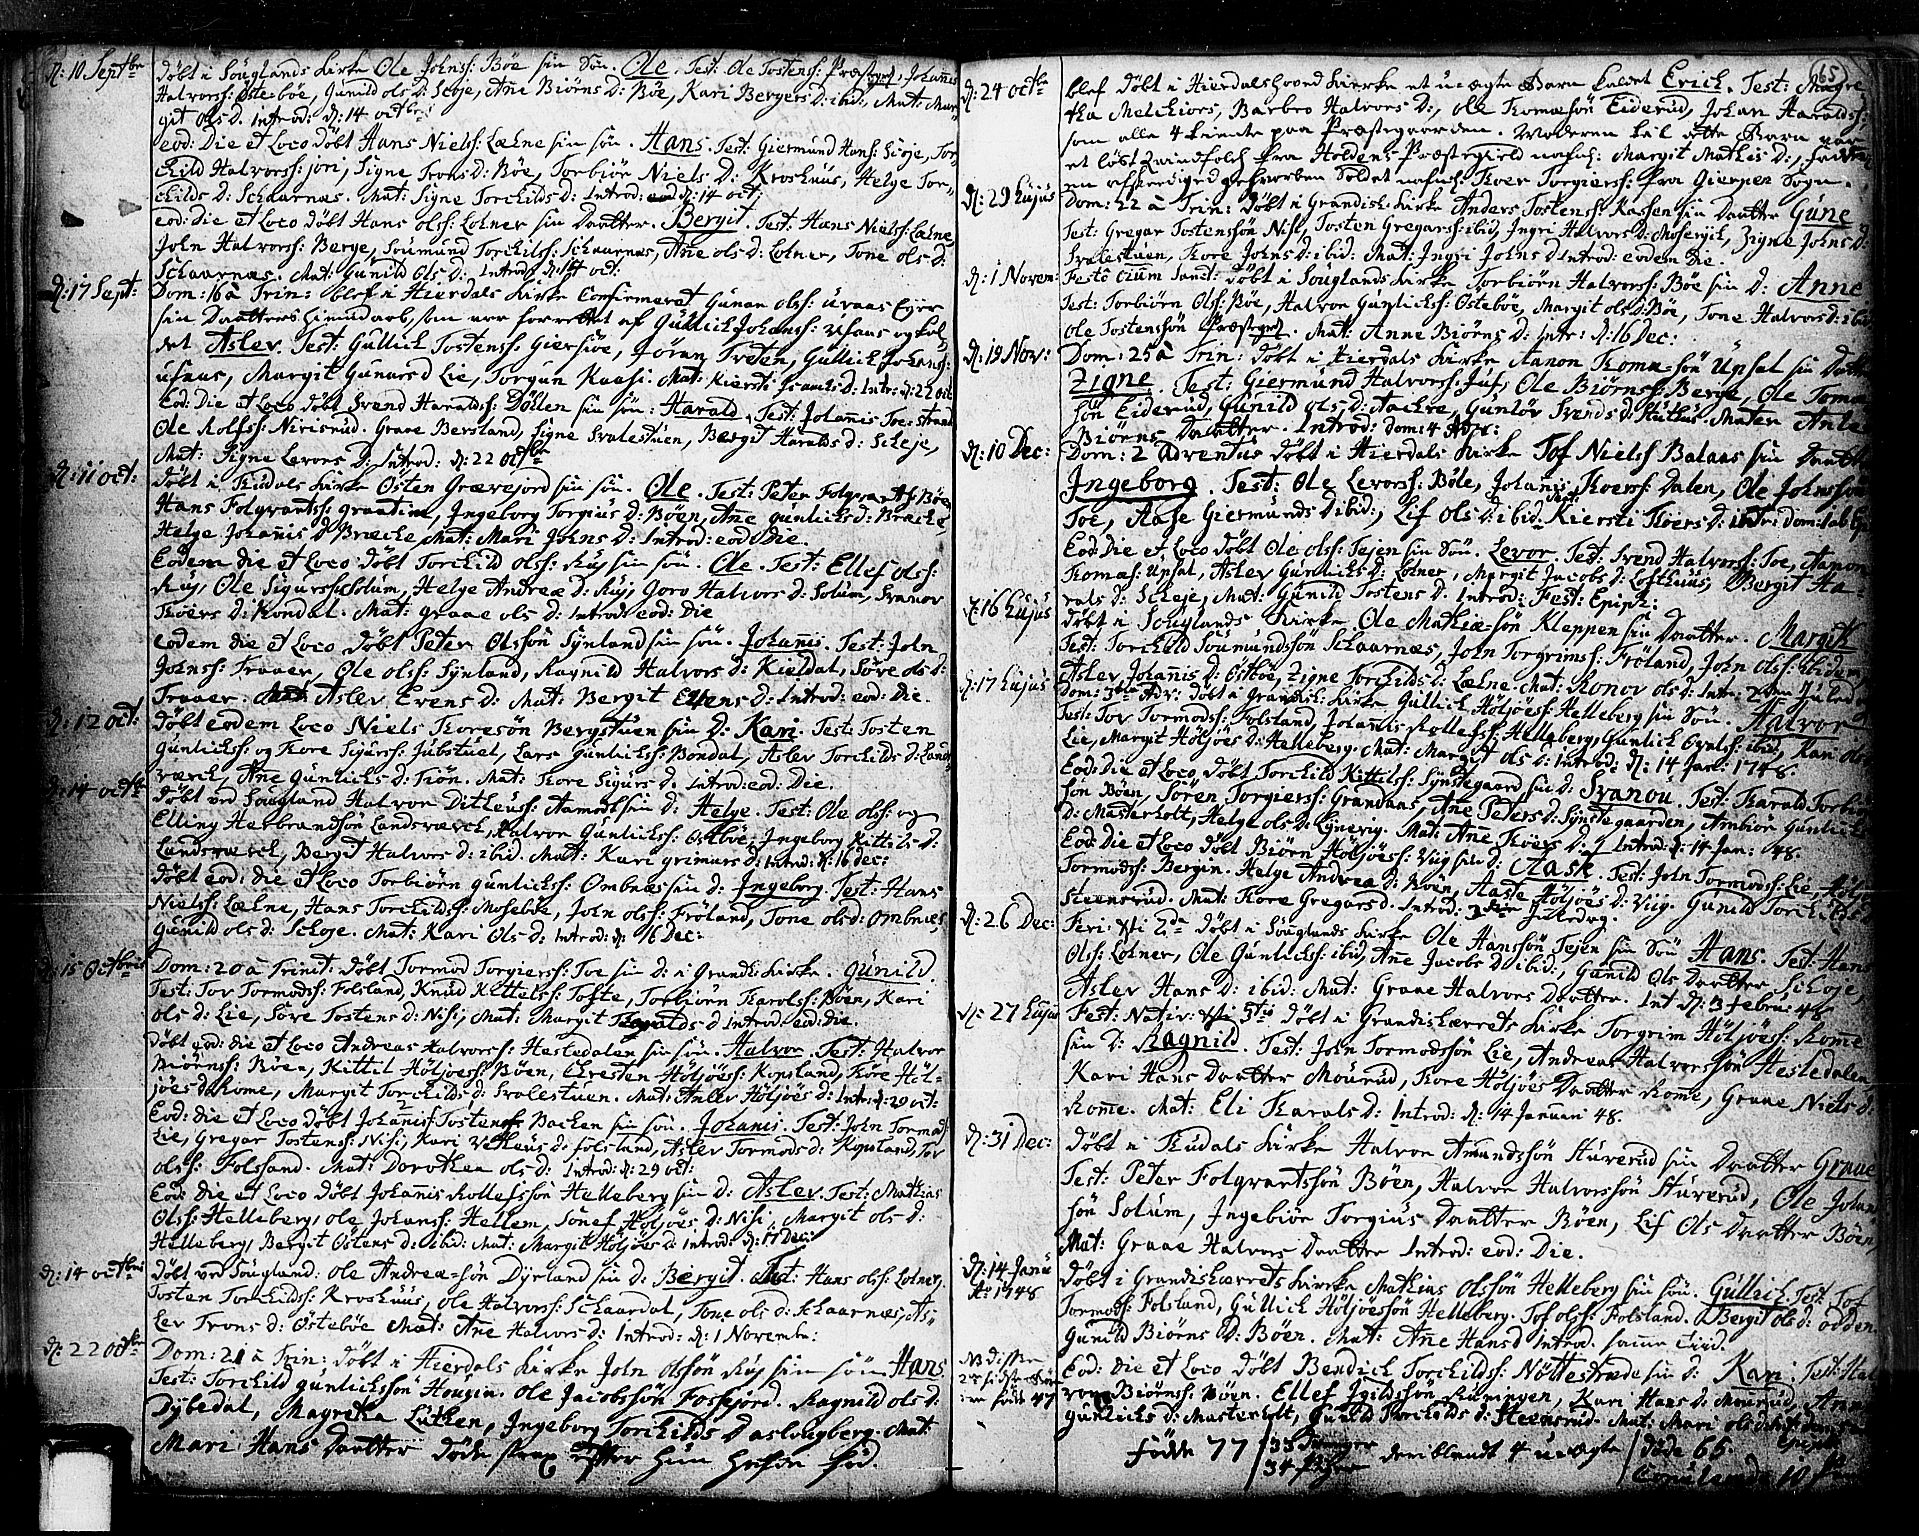 d: 10 Septbr
Døbt i Souglands Kirke Ole Johnss: Bøe sin Søn. Ole. Test: Ole Tostens: Præstgrd, Johannis
Halvorss: Østebøe, Gunild Ols D: Scoje, Ane Biørns D: Bøe, Kari Bergers D: ibid, Mat: Mar-
git Ols D. Introd: d: 14 octbr:
eod: Die et Loco døbt Hans Nielss: Lælne sin søn. Hans. Test: Giermund Hans: Scoje, Tor-
child Halvorss: Jori, Signe Trons D: Bøe, Torbiør Niels D: Kroshuus, Helge Tor-
childs D: Schaarnæs. Mat: Signe Torchilds D: Introd: d: 14 oct:
eod: die et Loco døbt Hans Olss: Lolner sin Daatter. Bergit. Test: Hans Nielss: Lælne,
John Halvorss: Berge, Soumund Torchilss: Schaarnæs, Ane Ols D: Lolner, Tone Ols D:
Schaarnæs. Mat: Gunild Ols D: Introd: d: 14 oct:
d: 17 Sept:
Dom: 16 à Trin: blef i Hierdals Kirke Confirmeret Gunar Olss: Uraas Eyer
sin Daatters hiemedaab, som var forrettet af Gullich Johanss: Ufaas og kal-
det Aslev. Test: Gullich Tostenss: Giersiøe, Jøran Treten, Gullich Johans:
Ufaas, Margit Gunars D Lie, Torgun Kaasi. Mat: Kiersti Isaachs D: Intr: d: 22 oct
Eod: Die et Loco døbt Svend Haraldss: Dølen sin søn: Harald. Test: Johannis Toe,
Ole Rolfss: Nirisrud. Graae Bersland, Signe Svalestuen, Bergit Haralds D: Scheje,
Mat: Signe Levors D: Introd: d: 22 Octbr
d: 11 oct:
Døbt i Tudals Kirke Østen Grævejord sin søn. Ole. Test: Peter Folgvars: Bøen
Hans Folgvartss: Ingeborg Torgius D: Bøen, Ane Gunlichs D: Bræche,
Helge Johannis D Bræche, Mat: Mari Johns D: Introd: eod: Die.
Eodem die et Loco døbt Torchild Olss: Ruj sin søn. Ole. Test: Ellef Olss:
Ruj, Ole Sigurss: Solum, Helge Andreæ D: Ruj, Goro Halvors D: Solum, Svanov
Thoers D: Kondal. Mat: Graae Ols D: Introd: eod: Die
eodem die et Loco Døbt Peter Olssøn Synland sin søn. Johannis. Test: John
Johnss: Traaer, Ole Olss: Synland, Ragnild Halvors D: Kieldal, Sore Ols D:
Traaer. Aslev Evens D: Mat: Bergit Ellens D: Introd: eod: Die.
d: 12 oct:
Døbt Eodem Loco Niels Thoresøn Bergstuen sin D: Kari. Test: Tosten
Gunlichss: og Thore Sigurss: Lars Gunlichss: Bondal, Aslev Torchilds D: Lands-
værch, Ane Gunlichs D: Trøn. Mat: Thore Sigurs D: Introd: eod: Die.
d: 14 octbr
Døbt ved Sougland Halvor Ditleuss: Aamot sin D: Helge. Test: Ole Olss: og
Elling Herbrandsøn Landsværch, Halvor Gunlichss: Østbøe, Ingeborg Kittils D:
Landsværch, Bergit Halvors D: ibid. Mat: Kari Grimars D: Introd: d: 16 dec:
Døbt eod: die et Loco Torbiørn Gunlichss: Ombnæs sin D: Ingeborg. Test: Hans
Nielss: Lælne, Hans Torchildss: Mosebøe, John Olss: Frøland, Tone Ols D: Ombnæs,
Gunild Ols D: Schoje. Mat: Kari Ols D: Introd: d: 16 Dec:
d: 15 Octbris
Dom: 20 à Trinit: Døbt Tormod Torgierss: Toe sin D: i Grandsk: Kirke. Gunild.
Test: Tov Tormodss: Folsland, Knud Kittelss: Tofte, Torbiørn Harolss: Bøen, Kari
Ols D: Lie, Sore Tostens D: Nisi, Mat: Margit D Introd: eod: die.
døbt eod: die et Loco Andreas Halvorss: Hestedalen sin søn. Halvor. Test: Halvor
Biørnss: Bøen, Kittil Høljøess: Bøen, Chresten Høljøess: Kopsland, Thore Høl-
jøes D: Rome, Margit Torchilds D: Svalestuen. Mat: Aslev Høljøes D: Introd: 29 oct:
Eod: die et Loco døbt Johannis Tostens: Bachen sin søn. Johanis. Test: John Tormod:
Lie, Gregar Tostenss: Nisi, Kari D: Folsland, Aslev Tormods D: Kopsland, Tov
Olss: Folsland. Mat: Dorothea Ols D: Introd: d: 29 oct:
Eod: Die et Loco døbt Johannis Rollefssøn Helleberg sin D: Aslev. Test: Mathias
Olss: Helleberg, Ole Johanss: Hellem, Sønef Høljøes D: Nisi, Margit Ols D:
Helleberg, Bergit Østens D: ibid: Mat: Margit Høljøes D: Introd: d: 17 Dec:
d: 14 octbris
Døbt ved Sougland: Ole Andreæ-søn Dyrland sin D: Bergit. Test: Hans Olss: Lolner,
Tosten Torchildss: Kroshuus, Ole Halvorss: Schaardal, Tone Ols D: Schaarnæs, As-
lev Trons D: Østebøe Mat: Ane Halvors D: Introd: d: 1 Novembr:
d: 22 Octbr
Dom: 21 à Trin: døbt i Hierdals Kirke John Olssøn Ruj sin søn Hans.
Test: Torchild Gunlichssøn Hougin. Ole Jacobssøn Fosfjord. Ragnild Ols D:
Dybedal, Magretha Lutken, Ingeborg Torchilds D Aslougberg. Mat:
Mari Hans Daatter døde strax efter hun hafde fød.
65
d: 24 octbr
blef døbt i Hierdalshoved Kierke et uægte Barn kaldet Erich. Test: Magre-
tha Melchiors, Barbro Halvors D:, Ole Thomæsøn Eiderud, Johan Haraldss:
som alle 4 tiente paa Præstegaarden. Moderen til dette Barn var
et løst Qvindfolch fra Holdens Præstegield nafnl: Margit Mathis D:, Fadren
en afskediged gehvorben Soldat nafnl: Thoer Torgierss: fra Gierpen Sogn.
d: 29 hujus
Dom: 22 à Trin: Døbt i Grandsk: Kirke Anders Tostenss: Kaasen sin Daatter Gune
Test: Gregar Tostenssøn Nisi, Tosten Gregarss: ibid, Ingri Halvors D: Moserych, Zigne Johns D:
Svalestuen, Thore Johns D: ibid: Mat: Ingri Johns D Introd: eodem die.
d: 1 Novem:
Festo omn: Sanct: døbt i Souglands Kirke Torbiørn Halvorss: Bøe sin D: Anne
Test: Torbiørn Olss: Bøe, Halvor Gunlichss: Østebøe, Margit Ols D: Bøe, Tone Halvors D: ibid
Ole Tostenssøn Præstegrd. Mat: Anne Biørns D: Intr: d: 16 Dec:
d: 19 Nov:
Dom: 25 à Trin: døbt i Hierdals Kirke Aanon Thomæ-søn Upsal sin Daatter
Zigne. Test: Giermund Halvorss: Juf, Ole Biørnss: Berge, Ole Tomæ-
søn Eiderud, Gunild Ols D: Aachre, Gunlør Svends D: Kuthus. Mater Anlev
Biørns Daatter. Introd: Dom: 4 Adv:
d: 10 Dec:
Dom: 2 Adventus døbt i Hierdals Kirke Tof Nielss Balaas sin Daatter
Ingeborg. Test: Ole Levorss: Bøle, Johannis Thoerss: Dalen, Ole Johnssøn
Toe, Aase Giermunds D ibid:, Lif Ols D: ibid Mat: Kiersti Thoers D: Intr: Dom: 1 ab Ep:
Eod: Die et Loco døbt Ole Olss: Tejen sin Søn. Levor. Test: Svend Halvorss: Toe, Aanon
Thomæs: Upsal, Aslev Gunlichs D: Lolner, Margit Jacobs D: Lofthuus, Bergit Ha-
ralds D: Scheje, Mat: Gunild Tostens D: Introd: Fest: Epiph:
d: 16 hujus
Døbt i Souglands Kirke. Ole Mathiæ-søn Kleppen sin Daatter. Margit
Test: Torchild Soumundssøn Schaarnæs, John Torgrimss: Frøland, John Olss: ibidem,
Aslev Johannis D: Østbøe, Zigne Torchilds D: Lælne. Mat: Ronov Ols D: Intr: 2den Juledag
d: 17 hujus
Dom: 3tia Adv: døbt i Grandsk: Kirke Gullich Høljøess: Helleberg sin Søn. Halvor.
Test: Tov Tormods: Folsland, Johannis Rollefss: Helleberg, Gunlich ibid, Kari Ols
Lie, Margit Høljøes D: Helleberg. Mat: Margit Ols D: Introd: d: 14 Jan: 1748.
Eod: Die et Loco, døbt Torchild Kittilss: Synstegaard sin D: Svanou. Test: Harald Torbiørn-
søn Bøen, Søren Torgierss: Grandaas, Ane Peters D: Synstegaarden, Ambiør Gunlichs
D: Masterholt, Helge Ols D: Mat: Ane Thoers D. Introd: d: 14 Jan: 48.
Eod: Die et Loco døbt Biørn Høljøess: Viig sin D: Aase. Test: John Tormodss: Lie, Høljø
Tormodss: Bergin. Helge Andreæ D: Noen, Aaste Høljøes D: Viig. Gunild Torchilds D
Steensrud. Mat: Thore Gregars D. Introd: 3die Juledag.
d: 26 Dec:
Feri: Xti 2da døbt i Souglands Kirke Ole Hanssøn Tejen sin Søn Hans. Test: Hans
Olss: Lolner, Ole Gunlichss: ibid, Ane Jacobs D: ibid:, Gunild Ols Daatter Schoje,
Aslev Hans D: ibid: Mat: Graae Halvors Daatter. Int: d: 3 Febru: 48
d: 27 hujus
Fest: Nativ: Xti 3tia Døbt i Grandskærrets Kirke Torgrim Høljøess: Rome
sin D: Ragnild. Test: John Tormodssøn Lie, Andreas Halvorssøn Hestedalen,
Kari Hans Daatter Mourud, Thore Høljøes Daatter Rome, Graae Niels D:
Rome. Mat: Eli Harals D: Introd: d: 14 Januari 48.
d: 31 Dec:
Døbt i Tudals Kirke Halvor Amundssøn Sturerud sin Daatter Graae
Test: Peter Folgvartssøn Bøen, Halvor Halvorssøn Sturerud, Ole Johan-
søn Solum, Ingebiør Torgius Daatter Bøen, Lif Ols Daatter Bøen,
Mat: Graae Halvors Daatter Introd: eod: Die.
d: 14 Janu
Ao 1748
Døbt i Grandiskærrets Kircke Mathias Olssøn Helleberg sin søn. Gullich. Test: Tof
Tormods: Folsland, Gullich Høljøessøn Helleberg. Tof Olss: Folsland. Bergit Ols D: Odden.
Gunild Biørns D: Bøen. Mat: Ane Hans D Introd. samme Tiid.
NB disse
2de sidste
ere fødte 47
Eod: Die et Loco Døbt Bendich Torchildss: Nøttestrade sin D: Kari. Test: Hal-
vor Biørnss: Bøen. Ellef Igildssøn Runingen, Kari Hans D: Mourud, Anne
Gunlichs D: Masterholt, Gunild Torchilds D: Steensrud. Mat: Mari Ols D
Fødde 77 / 33 Drenger / 34 Piger deriblandt 4 uægte / døde 66.
Copulerede 10 Par